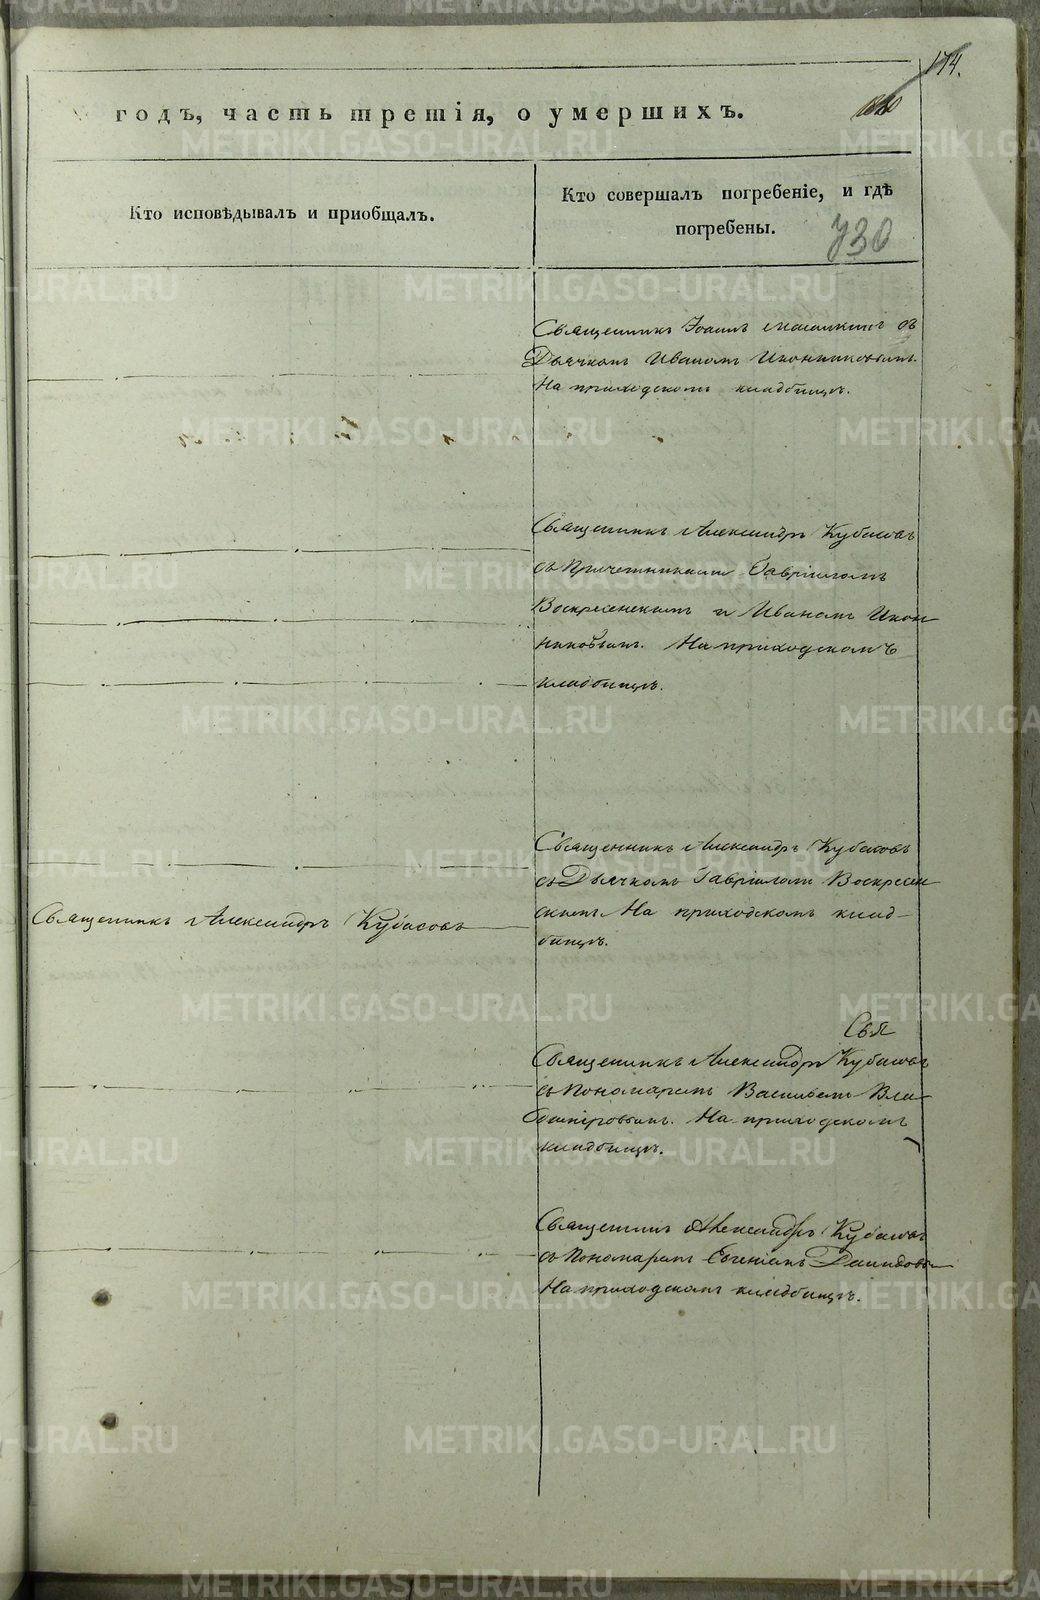 174.
годъ, часть третія, о умершихъ.
Кто исповѣдывалъ и приобщалъ.
Кто совершалъ погребеніе, и гдѣ
погребены.
730
Священникъ Іоаннъ съ
Дьячкомъ Иваномъ Иконниковымъ.
На приходскомъ кладбищѣ.
Священникъ Александръ Кубасовъ
съ Причетниками Гавріиломъ
Воскресенскимъ и Иваномъ Икон
никовымъ. На приходскомъ
кладбищѣ.
Священникъ Александръ Кубасовъ
съ Дьячкомъ Гавріиломъ Воскресен
скимъ. На приходскомъ клад-
бищѣ.
Священникъ Александръ Кубасовъ
Свя
Священникъ Александръ Кубасовъ
съ Пономаремъ Василіемъ Вла-
диміровымъ. На приходскомъ
кладбищѣ.
Священникъ Александръ Кубасовъ
съ Пономаремъ Евгеніемъ Давидовы
На приходскомъ кладбищѣ.
METRIKI.GASO-URAL.RU